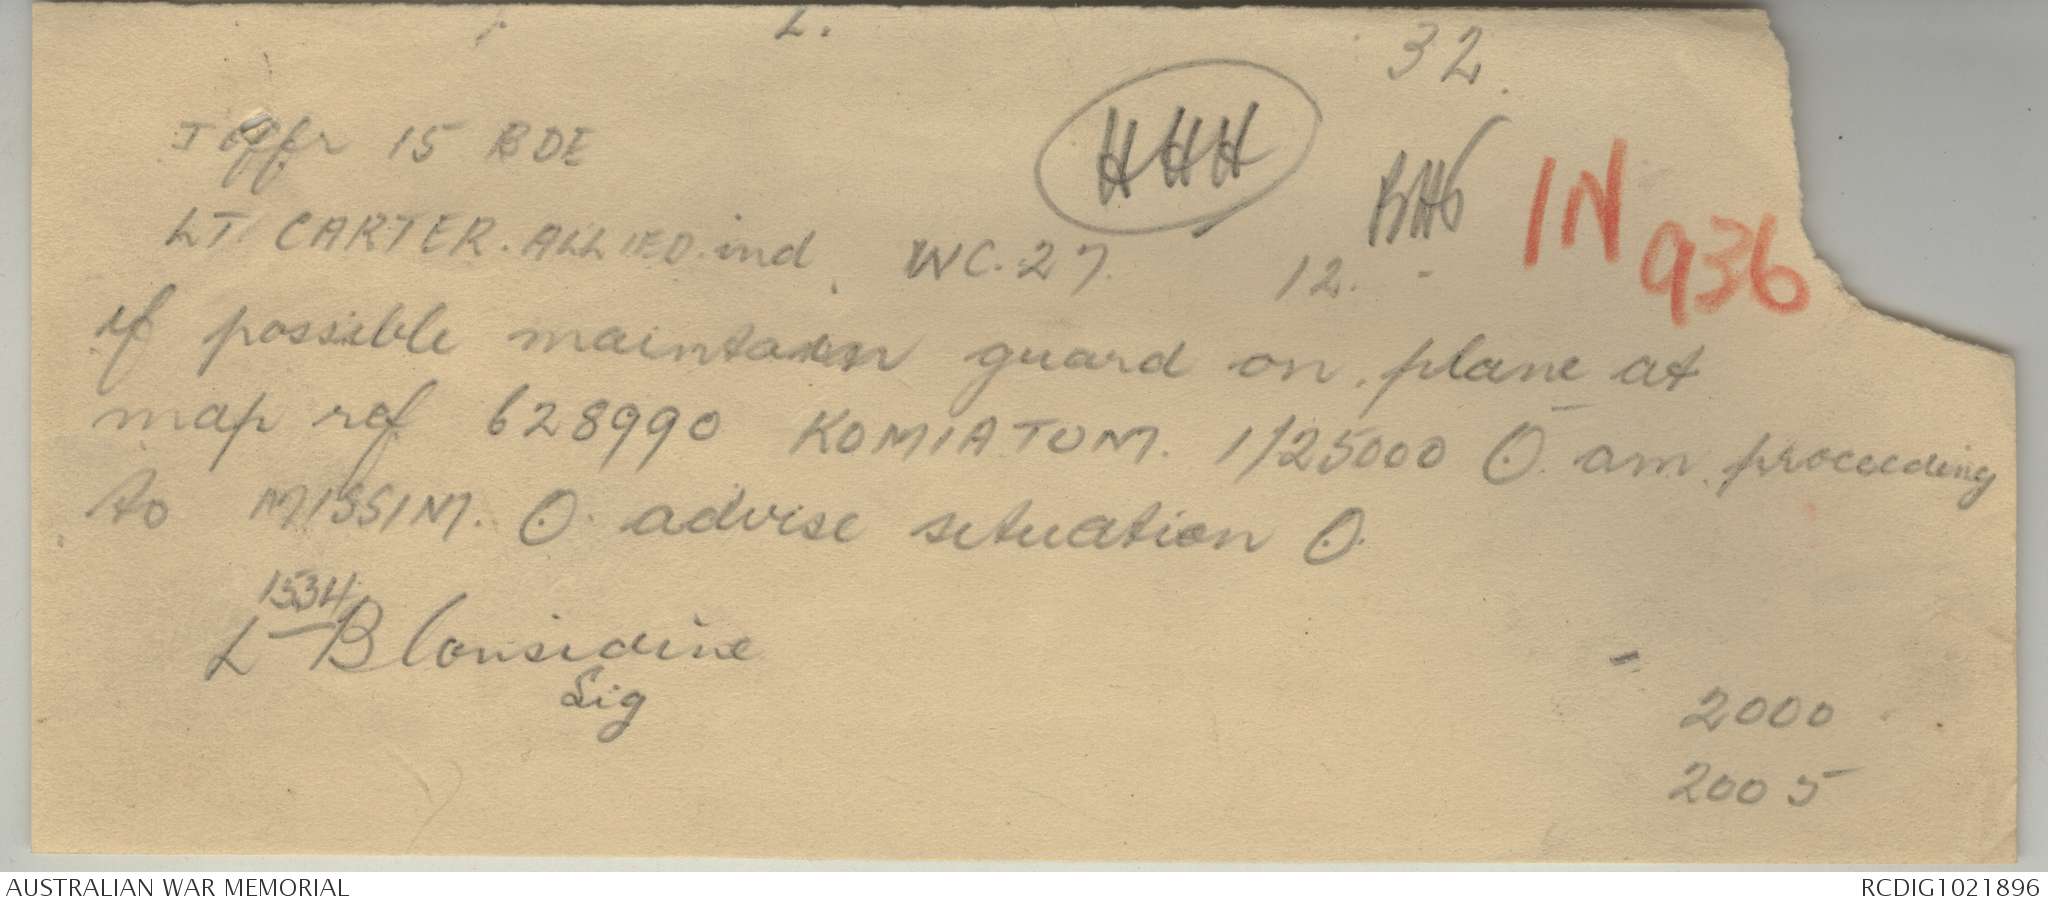 L.
32.
I offr 15 BDE
HHH
IN 936
LT. CARTER. ALLIED. ind. WC. 27. 12.
if possible maintain guard on plane at
map ref 628990 KOMIATUM. 1/25000 O. am proceeding
to MISSIM. O. advise situation O.
1534
L B Considine
Sig
2000
2005
AUSTRALIAN WAR MEMORIAL
RCDIG1021896